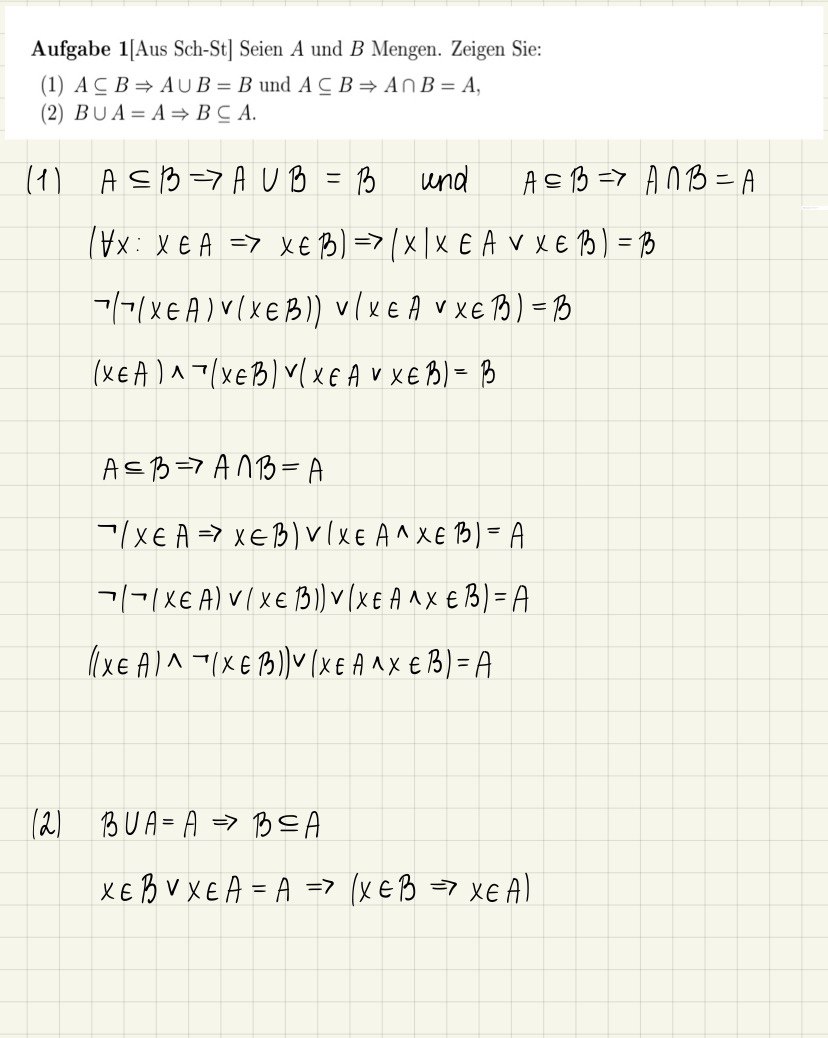 Aufgabe 1[Aus Sch-St] Seien A und B Mengen. Zeigen Sie:
(1) A ⊆ B ⇒ A ∪ B = B und A ⊆ B ⇒ A ∩ B = A,
(2) B ∪ A = A ⇒ B ⊆ A.
(1) A ⊆ B ⇒ A ∪ B = B und A ⊆ B ⇒ A ∩ B = A
(∀x: x ∈ A ⇒ x ∈ B) ⇒ (x | x ∈ A ∨ x ∈ B) = B
¬(¬(x ∈ A) ∨ (x ∈ B)) ∨ (x ∈ A ∨ x ∈ B) = B
(x ∈ A) ∧ ¬(x ∈ B) ∨ (x ∈ A ∨ x ∈ B) = B
A ⊆ B ⇒ A ∩ B = A
¬(x ∈ A ⇒ x ∈ B) ∨ (x ∈ A ∧ x ∈ B) = A
¬(¬(x ∈ A) ∨ (x ∈ B)) ∨ (x ∈ A ∧ x ∈ B) = A
((x ∈ A) ∧ ¬(x ∈ B)) ∨ (x ∈ A ∧ x ∈ B) = A
(2) B ∪ A = A ⇒ B ⊆ A
x ∈ B ∨ x ∈ A = A ⇒ (x ∈ B ⇒ x ∈ A)